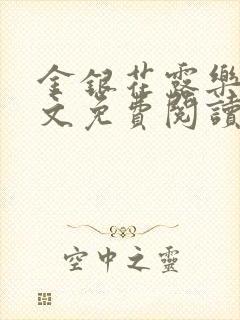 金銀花露樂
文免費閱讀
空中之靈